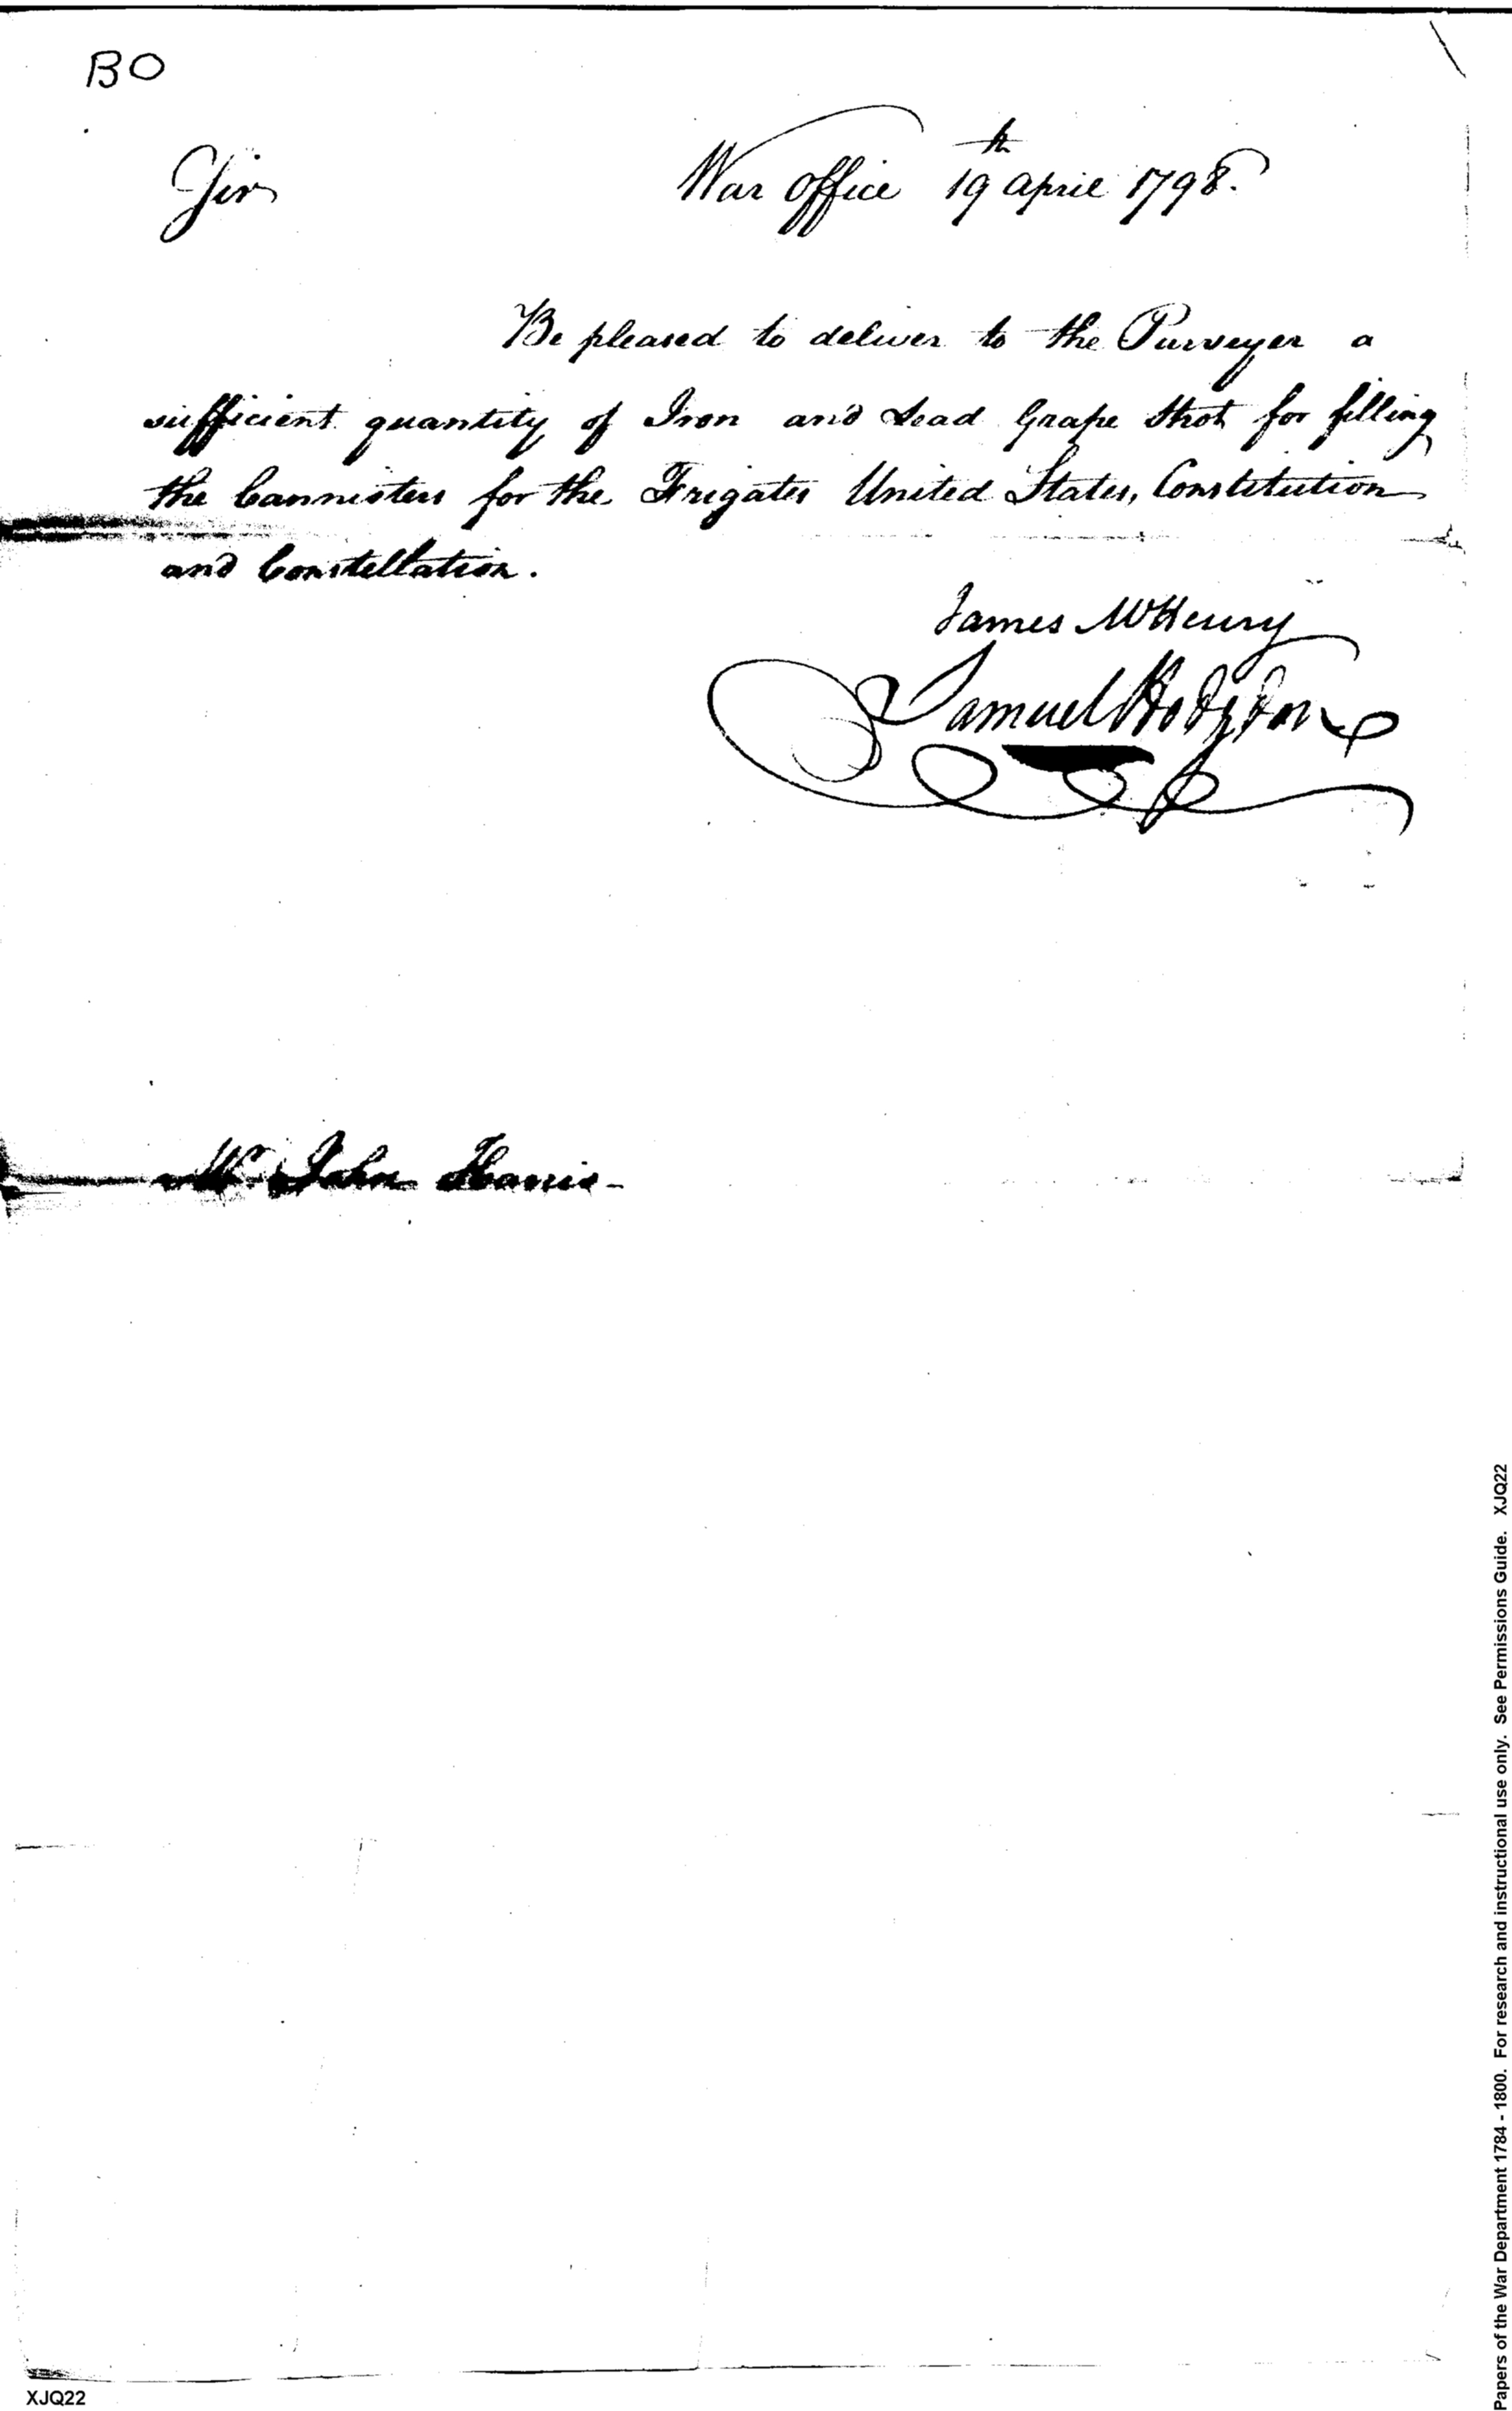 BO
Sir
War office 19th april 1798.
Be pleased to deliver to the Purveyer a
sufficient quantity of Iron and Lead Grape Shot for filling
the Cannisters for the Frigates United States, Constitution
and Constellation.
James McHenry
Samuel Hodgdon
Mr. John Harris
XJQ22
Papers of the War Department 1784 - 1800. For research and instructional use only. See Permissions Guide. XJQ22